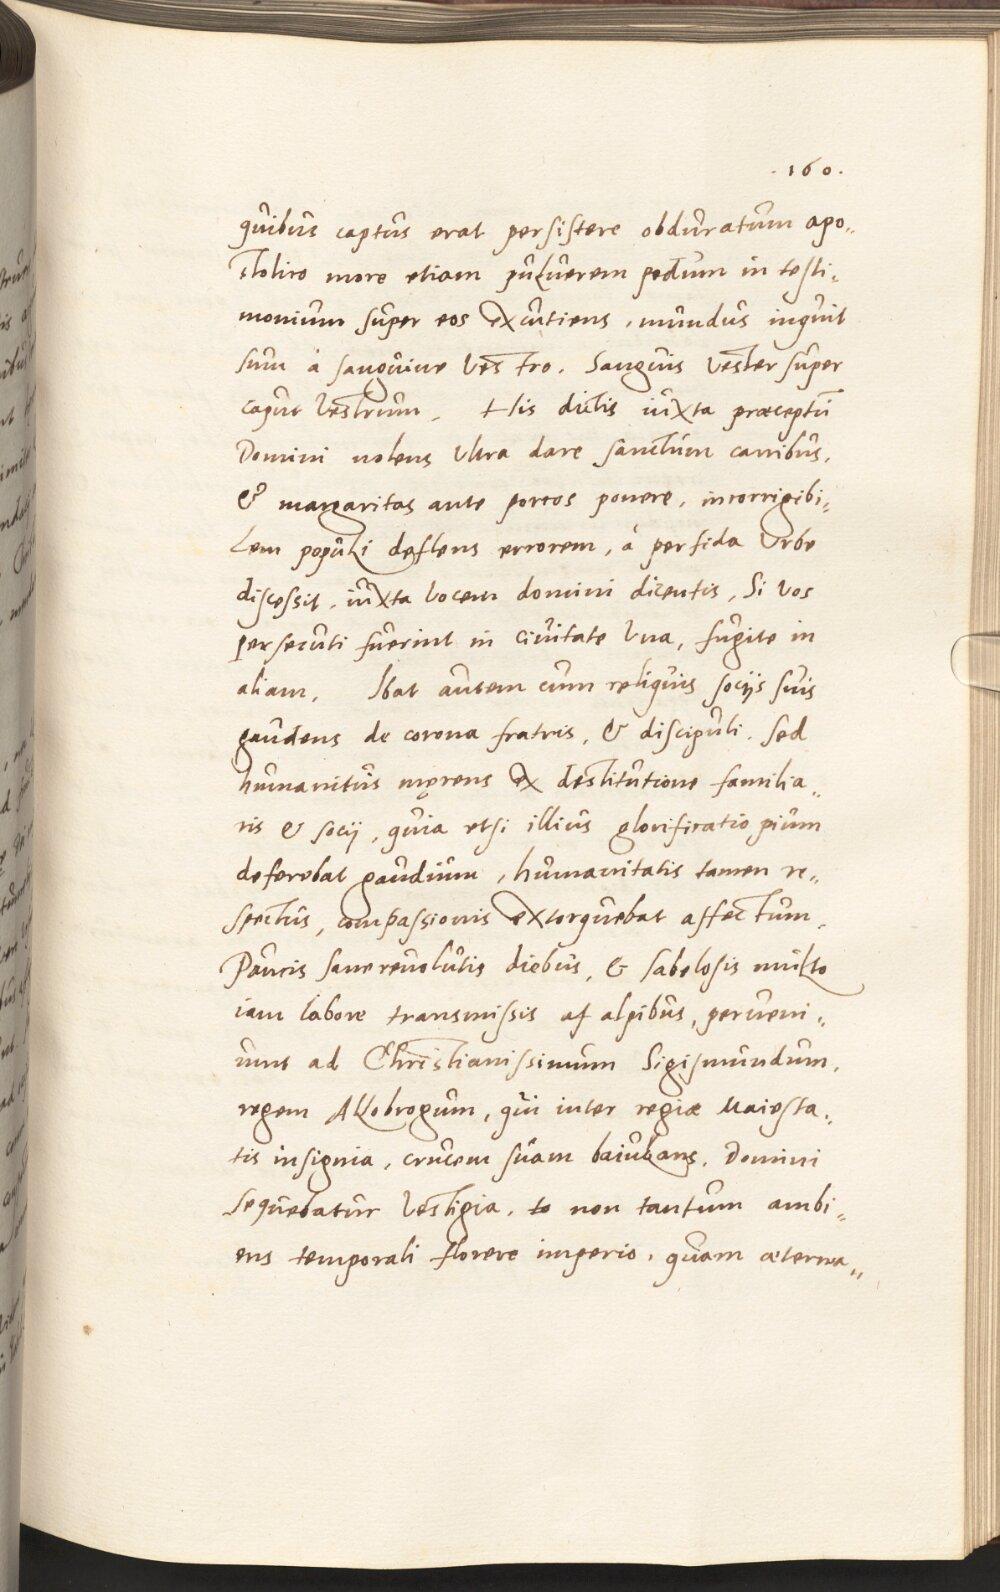 .160.
quibus captus erat persistere obduratum apo„
stolico more etiam puluerem pedum in testi„
monium super eos excutiens, mundus inquit
sum à sanguine vestro. Sanguis vester super
caput vestrum. His dictis iuxta præceptū
Domini nolens vltra dare sanctum canibus,
& margaritas ante porcos ponere, incorrigibi„
lem populi deflens errorem, à perfida vrbe
discessit, iuxta vocem domini dicentis, Si vos
persecuti fuerint in ciuitate vna, fugite in
aliam. Ibat autem cum reliquis socijs suis
gaudens de corona fratris, & discipuli. sed
humanitus męrens ex destitutione familia„
ris & socij, quia etsi illius glorificatio pium
deferebat gaudium, humanitatis tamen re„
spectus, compassionis extorquebat affectum.
Paucis sane reuolutis diebus, & sabelosis multo
iam labore transmissis af alpibus, perueni„
unt ad Christianissimum Sigismundum,
regem Allobrogum, qui inter regiæ Maiesta„
tis insignia, crucem suam baiulans, Domini
sequebatur vestigia, to non tantum ambi„
ens temporali florere imperio, quam æterna„